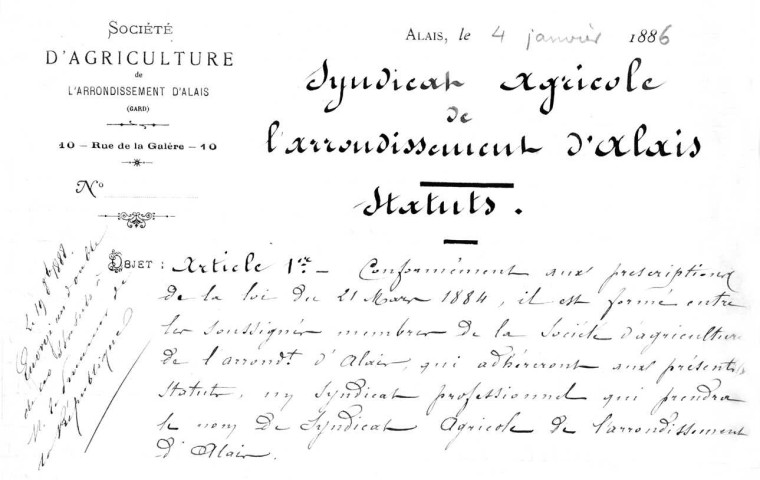 SOCIÉTÉ
D'AGRICULTURE
de
L'ARRONDISSEMENT D'ALAIS
(GARD)
10 — Rue de la Galère — 10
N°
ALAIS, le 4 janvier 1886
Syndicat Agricole
de
l'arrondissement d'Alais
Statuts.
OBJET : Article 1er — Conformément aux prescriptions
de la loi du 21 Mars 1884, il est formé entre
les soussignés membres de la Société d'agriculture
de l'arrondt d'Alais, qui adhèreront aux présents
statuts, un syndicat professionnel qui prendra
le nom de Syndicat Agricole de l'arrondissement
d'Alais.
Le 19
Envoyé un double
de ces statuts à
M. le
la République